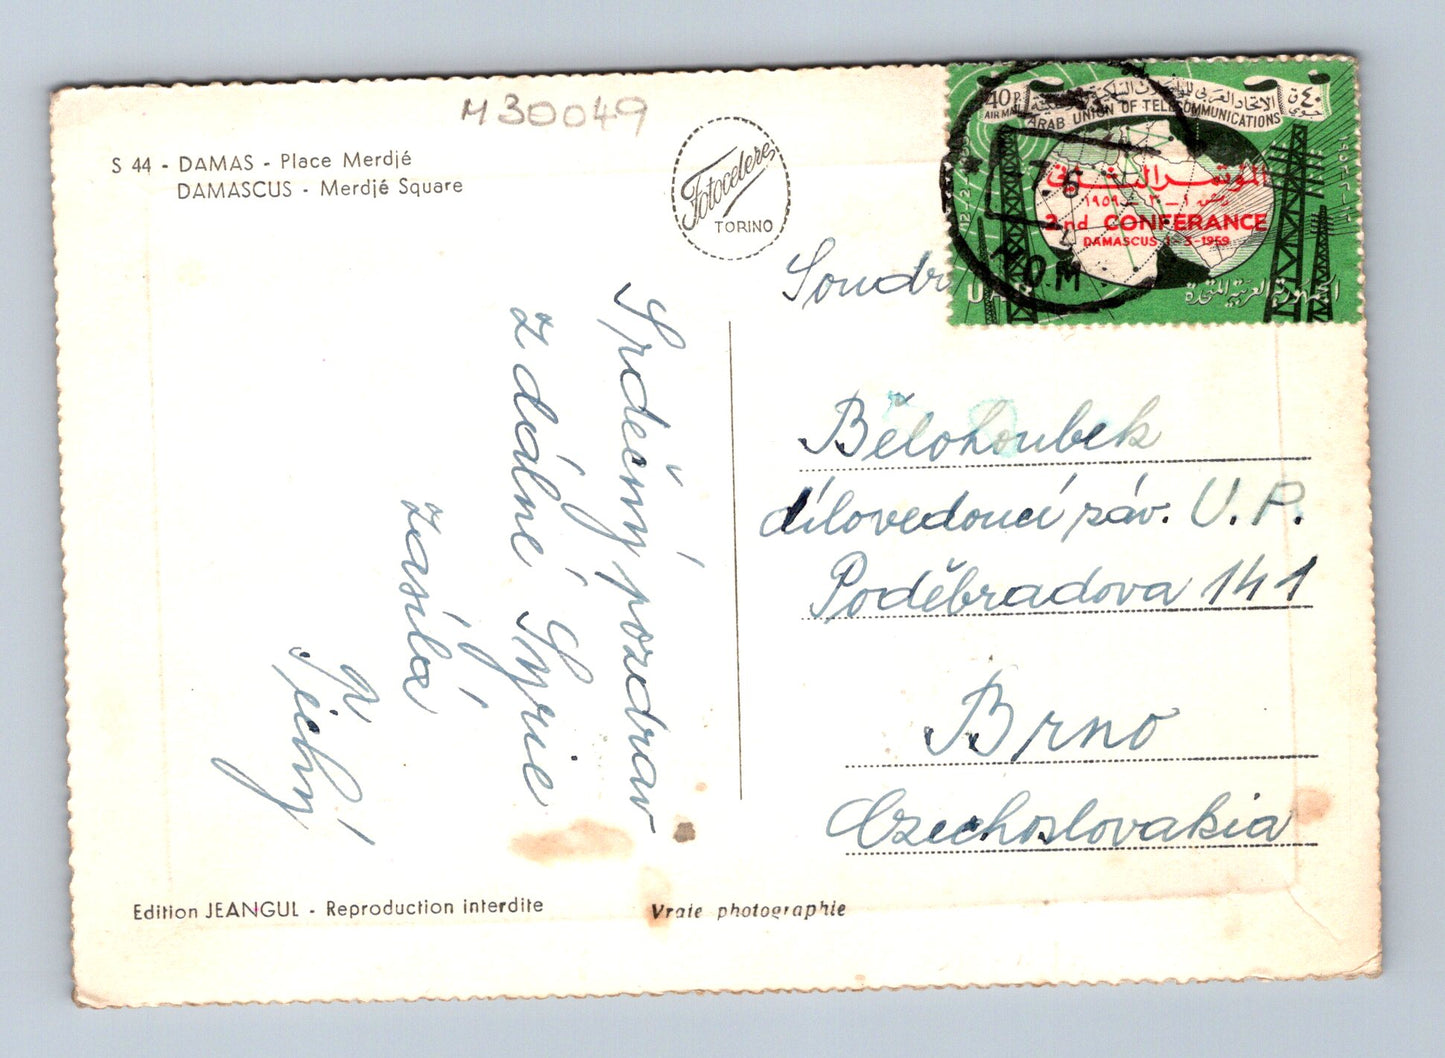 M30049
S 44 - DAMAS - Place Merdjé
DAMASCUS - Merdjé Square
Fotocelere
TORINO
40 P
AIR MAIL
ARAB UNION OF TELECOMMUNICATIONS
٤٠
المؤتمر الثاني
١٩٥٩
2nd CONFERANCE
DAMASCUS 1-3-1959
UAR
الجمهورية العربية المتحدة
HOM
Soudr
Srdečný pozdrav
z dálné Syrie
zasílá
Bělohoubek
dílovedoucí záv. U. P.
Poděbradova 141
Brno
Czechoslovakia
Edition JEANGUL - Reproduction interdite
Vraie photographie